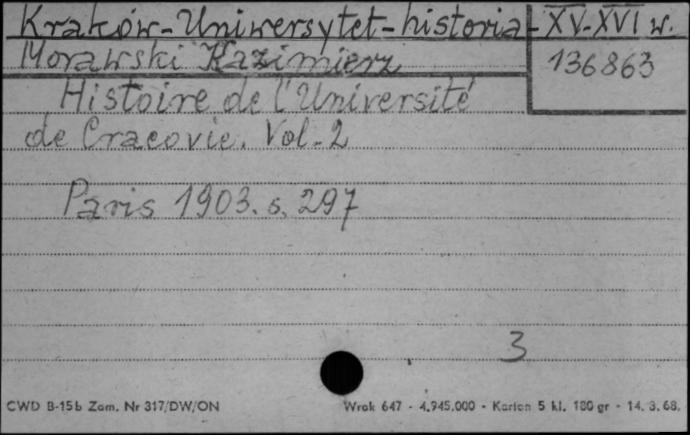 Kraków-Uniwersytet-historia-XV-XVI w.
Morawski Kazimierz
136863
Histoire de l'Université
de Cracovie. Vol-2
Paris 1903. s. 297
3
CWD B-15b Zam. Nr 317/DW/ON Wrak 647 - 4.945.000 - Karton 5 kl. 180 gr - 14. 3. 68.